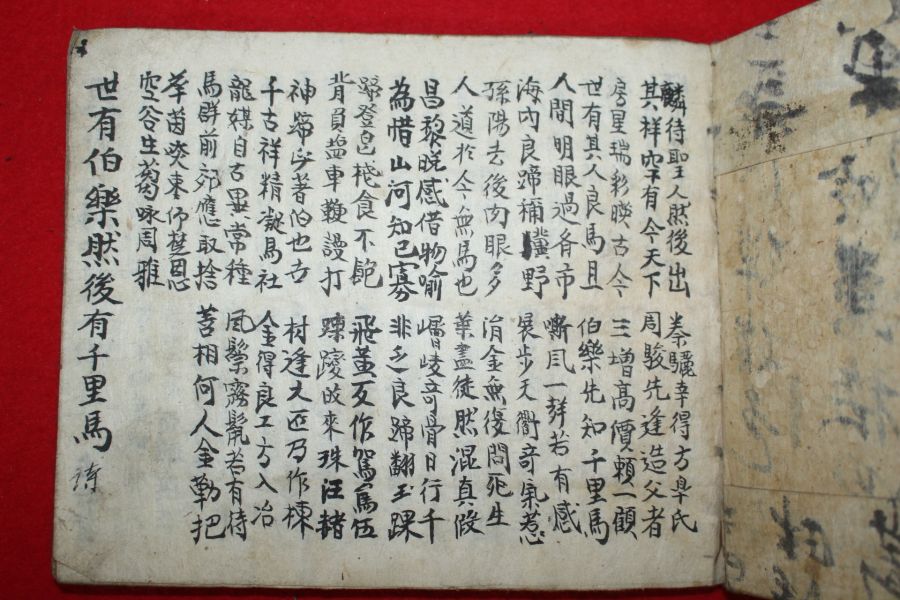 麟待聖人然後出
其祥空有今天下
房星瑞彩暎古今
世有其人良馬且
人間明眼過者市
海內良蹄稱驥野
孫陽去後肉眼多
人道於今無馬也
昌黎晩感借物喩
為惜山河知己寡
蹄登皀棧食不飽
背負盐車鞭謾打
神蹄必著伯也古
千古祥精凝馬社
龍媒自古異常種
馬群前郊應取捨
茵
空谷生蒭咏周雅
秦驪幸得方皐氏
周駿先逢造父者
三增高價賴一顧
伯樂先知千里馬
嘶風一群若有感
展步天衢奇氣惹
涓金無復問死生
葉盡徒然混真假
崚奇骨日行千
非乏良蹄翻玉踝
飛黃反作駕駑伍
踈蹤故來珠汪赭
村逢大匠乃作棟
金得良工方入冶
風鬃霧鬣若有待
苦相何人金勒把
世有伯樂然後有千里馬 詩